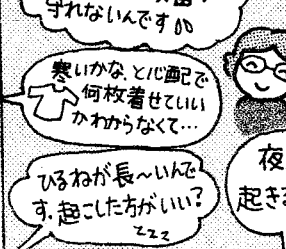 守れないんです
寒いかな、と心配で
何枚着せていい
かわからなくて…
ひるねが長〜いんで
す。起こした方がいい?
zzz
夜
起き